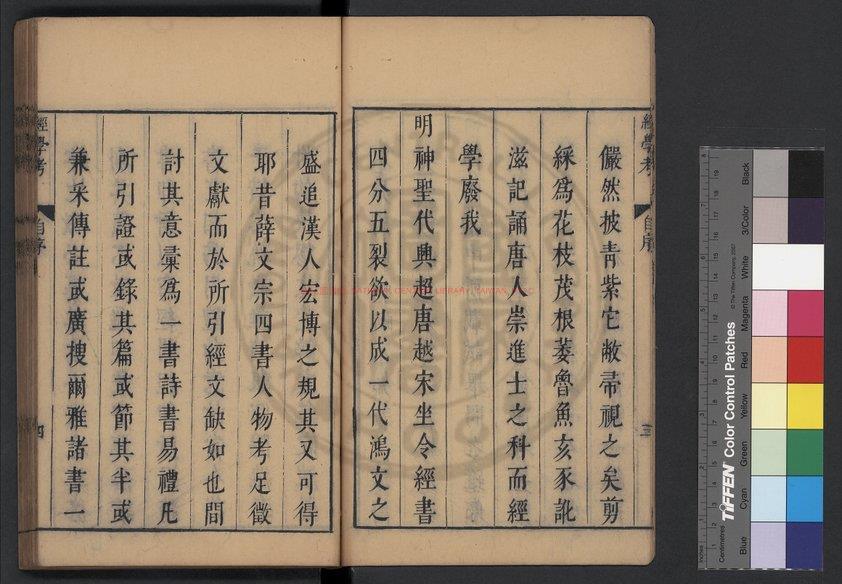 經學考
自序
三
儼然披青紫它敝帚視之矣剪
綵為花枝茂根萎魯魚亥豕訛
滋記誦唐人崇進士之科而經
學廢我
明神聖代興超唐越宋坐令經書
四分五裂欲以成一代鴻文之
盛追漢人宏博之規其又可得
耶昔薛文宗四書人物考足徵
文獻而於所引經文缺如也間
討其意彙為一書詩書易禮凡
所引證或錄其篇或節其半或
兼采傳註或廣搜爾雅諸書一
經學考
自序
四
NATIONAL CENTRAL LIBRARY, TAIWAN
Inches
Centimetres
TIFFEN Color Control Patches
© The Tiffen Company, 2007
Blue
Cyan
Green
Yellow
Red
Magenta
White
3/Color
Black